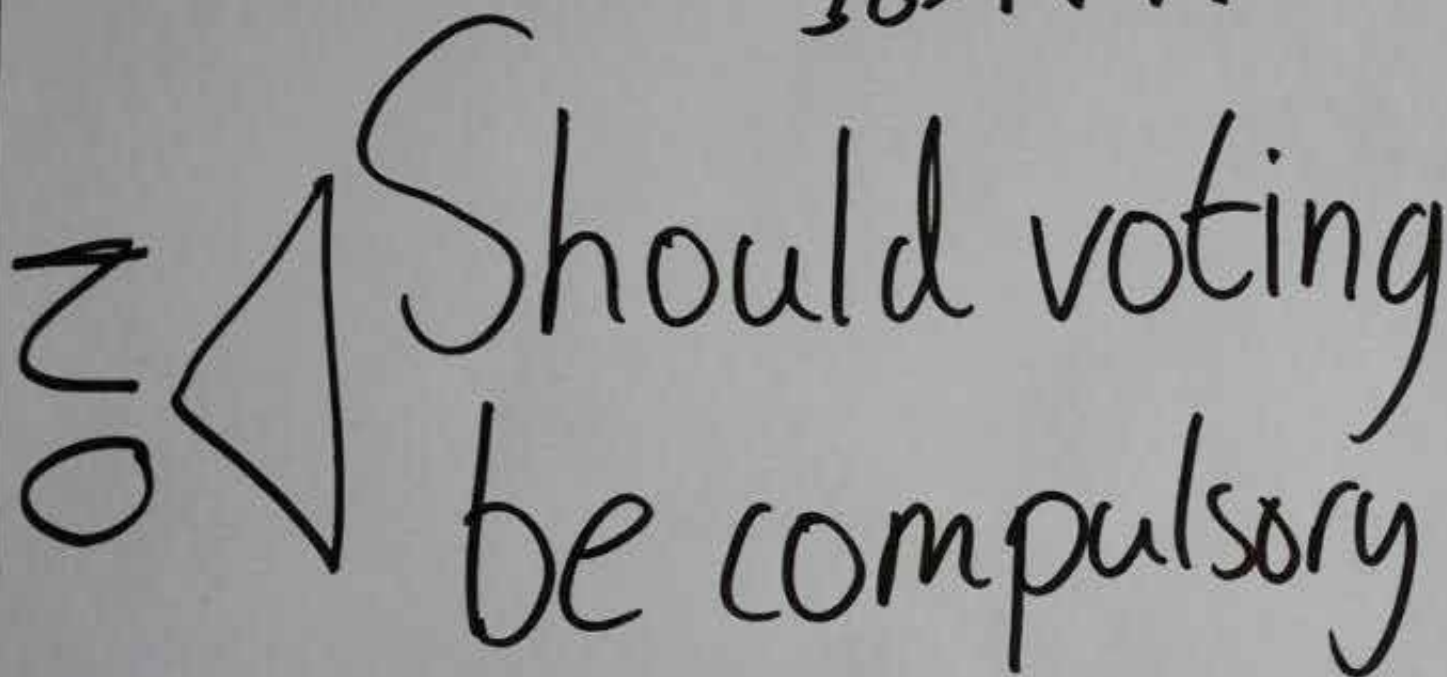 Should voting
be compulsory